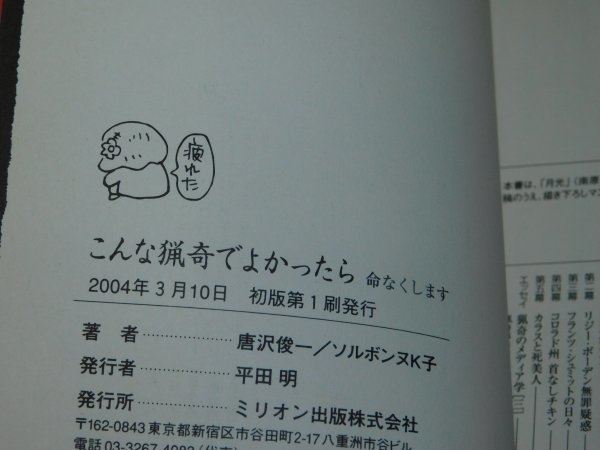 疲れた
こんな猟奇でよかったら 命なくします
2004年3月10日 初版第1刷発行
著 者 唐沢俊一/ソルボンヌK子
発行者 平田 明
発行所 ミリオン出版株式会社
〒162-0843 東京都新宿区市谷田町2-17八重洲市谷ビル
電話 03-3267-4082
本書は、「月光」(南原
稿のうえ、描き下ろしマン
第二幕 リジー・ボーデン無罪疑惑
第三幕 フランツ・シュミットの日々
第四幕 コロラド州 首なしチキン
第五幕 カラスと死美人
エッセイ 猟奇のメディア学【二】